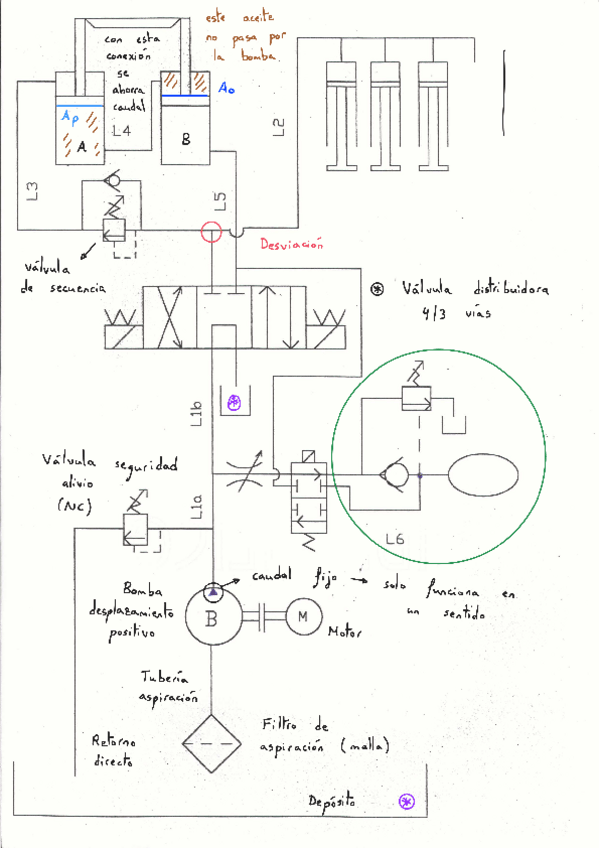 este aceite
no pasa por
la bomba.
con esta
conexión
se
ahorra
caudal
Ao
Ap
A
B
L4
L2
L3
L5
Desviación
válvula
de secuencia
Válvula distribuidora
4/3 vías
L1b
Válvula seguridad
alivio
(NC)
L1a
L6
caudal fijo → solo funciona en
un sentido
Bomba
desplazamiento
positivo
B
M
Motor
Tubería
aspiración
Filtro de
aspiración (malla)
Retorno
directo
Depósito